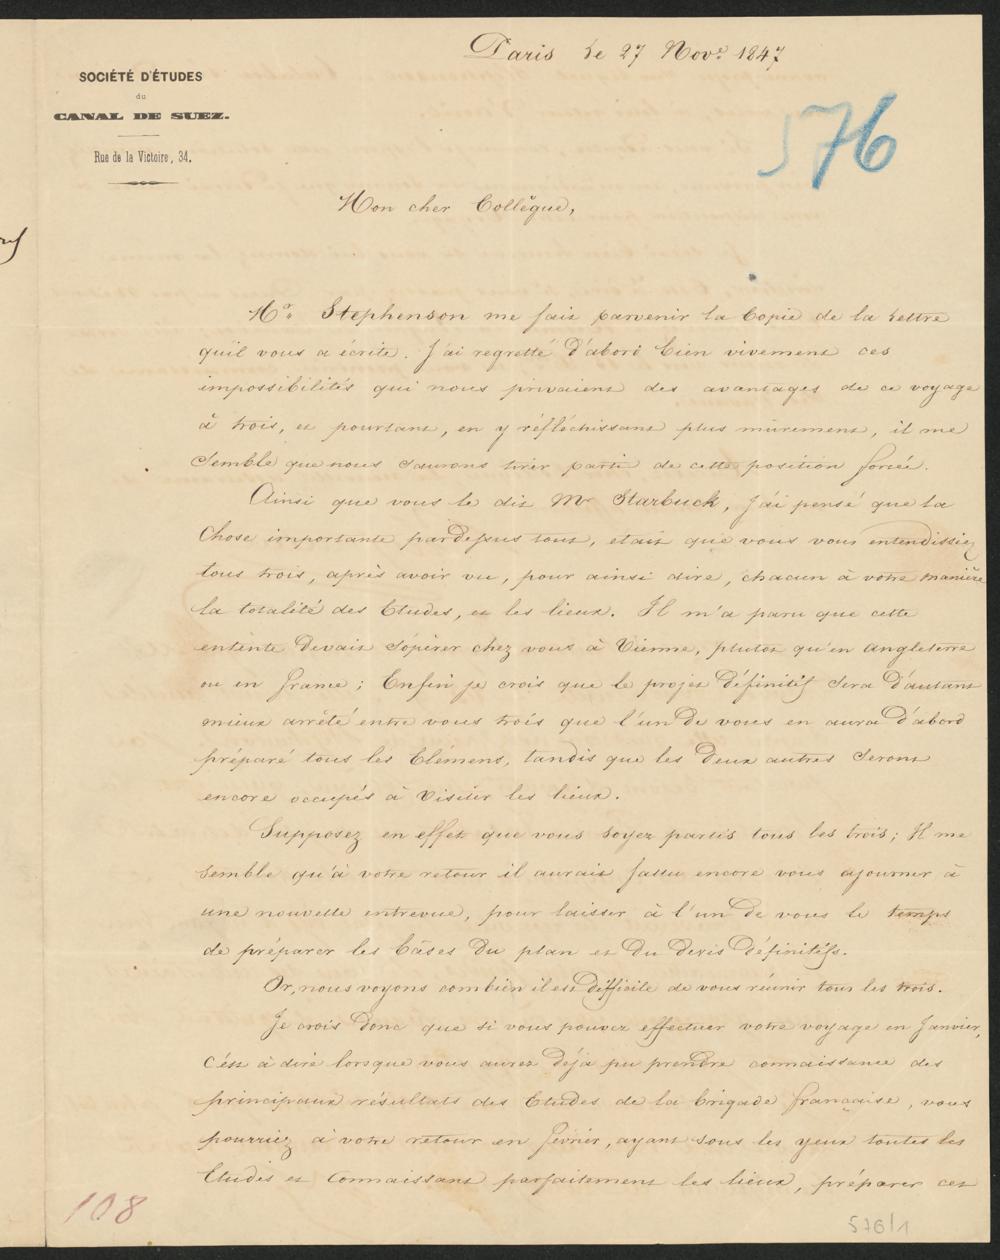 Paris le 27 Nov.e 1847
SOCIÉTÉ D'ÉTUDES
du
CANAL DE SUEZ.
Rue de la Victoire, 34.
576
Mon cher Collègue,
Mr. Stephenson me fait parvenir la Copie de la lettre
qu'il vous a écrite. J'ai regretté d'abord bien vivement ces
impossibilités qui nous privaient des avantages de ce voyage
à trois, et pourtant, en y réfléchissant plus mûrement, il me
semble que nous saurons tirer parti de cette position forcée.
Ainsi que vous le dit Mr Starbuck, j'ai pensé que la
Chose importante pardessus tout, était que vous vous entendissiez
tous trois, après avoir vu, pour ainsi dire, chacun à votre manière
la totalité des Etudes, et les lieux. Il m'a paru que cette
entente devait s'opérer chez vous à Vienne, plutot qu'en Angleterre
ou en France; Enfin je crois que le projet définitif sera d'autant
mieux arrêté entre vous trois que l'un de vous en aura d'abord
préparé tous les Elémens, tandis que les deux autres seront
encore occupés à visiter les lieux.
Supposez en effet que vous soyez partis tous les trois; Il me
semble qu'à votre retour il aurait fallu encore vous ajourner à
une nouvelle entrevue, pour laisser à l'un de vous le temps
de préparer les bâses du plan et du devis définitifs.
Or, nous voyons combien il est difficile de vous réunir tous les trois.
Je crois donc que si vous pouvez effectuer votre voyage en Janvier,
c'est à dire lorsque vous aurez déja pu prendre connaissance des
principaux résultats des Etudes de la brigade française, vous
pourriez à votre retour en février, ayant sous les yeux toutes les
Etudes et connaissant parfaitement les lieux, préparer cet
108
576/1